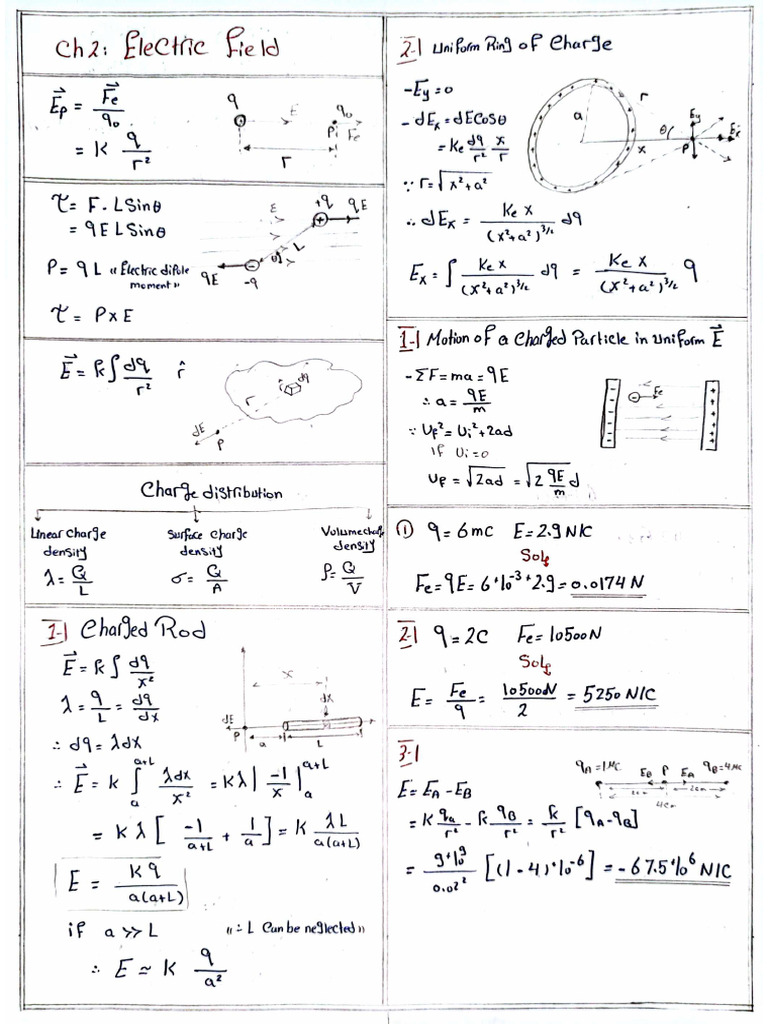 Ch2: Electric Field
E⃗p = F⃗e / q₀
= K q / r²
q
E
q₀
P
Fe
r
τ = F · L Sinθ
= q E L Sinθ
P = q L « Electric dipole
moment »
τ = P x E
E
+q
qE
L
θ
qE
-q
E⃗ = k ∫ dq / r² r̂
dq
r̂
r
dE
P
Charge distribution
Linear charge
density
λ = Q / L
Surface charge
density
σ = Q / A
Volume charge
density
ρ = Q / V
1-| Charged Rod
E⃗ = k ∫ dq / x²
λ = q / L = dq / dx
∴ dq = λdx
∴ E⃗ = K ∫ₐᵃ⁺ᴸ λdx / x² = Kλ | -1 / x |ₐᵃ⁺ᴸ
= K λ [ -1 / a+L + 1 / a ] = K λL / a(a+L)
E = K q / a(a+L)
if a >> L « ∴ L Can be neglected »
∴ E ≃ K q / a²
x
dx
dE
P
a
L
2-| Uniform Ring of Charge
- Ey = 0
- dEx = dE Cosθ
= Ke dq / r² x / r
∵ r = √x² + a²
∴ dEx = Ke x / (x² + a²)^3/2 dq
Ex = ∫ Ke x / (x² + a²)^3/2 dq = Ke x / (x² + a²)^3/2 q
a
r
x
θ
Ey
P
Ex
1-| Motion of a Charged Particle in Uniform E⃗
- ΣF = ma = qE
∴ a = qE / m
∵ Uf² = Ui² + 2ad
if Ui = 0
Uf = √2ad = √2 qE / m d
Fe
① q = 6mC E = 2.9 N/C
Sol:
Fe = qE = 6*10⁻³ * 2.9 = 0.0174 N
2-| q = 2C Fe = 10500N
Sol:
E = Fe / q = 10500N / 2 = 5250 N/C
3-|
qA = 1MC EB P EA qB = 4MC
2cm 2cm
4cm
E = EA - EB
= K qa / r² - k qB / r² = k / r² [qA - qB]
= 9*10⁹ / 0.02² [(1 - 4)*10⁻⁶] = - 67.5*10⁶ N/C